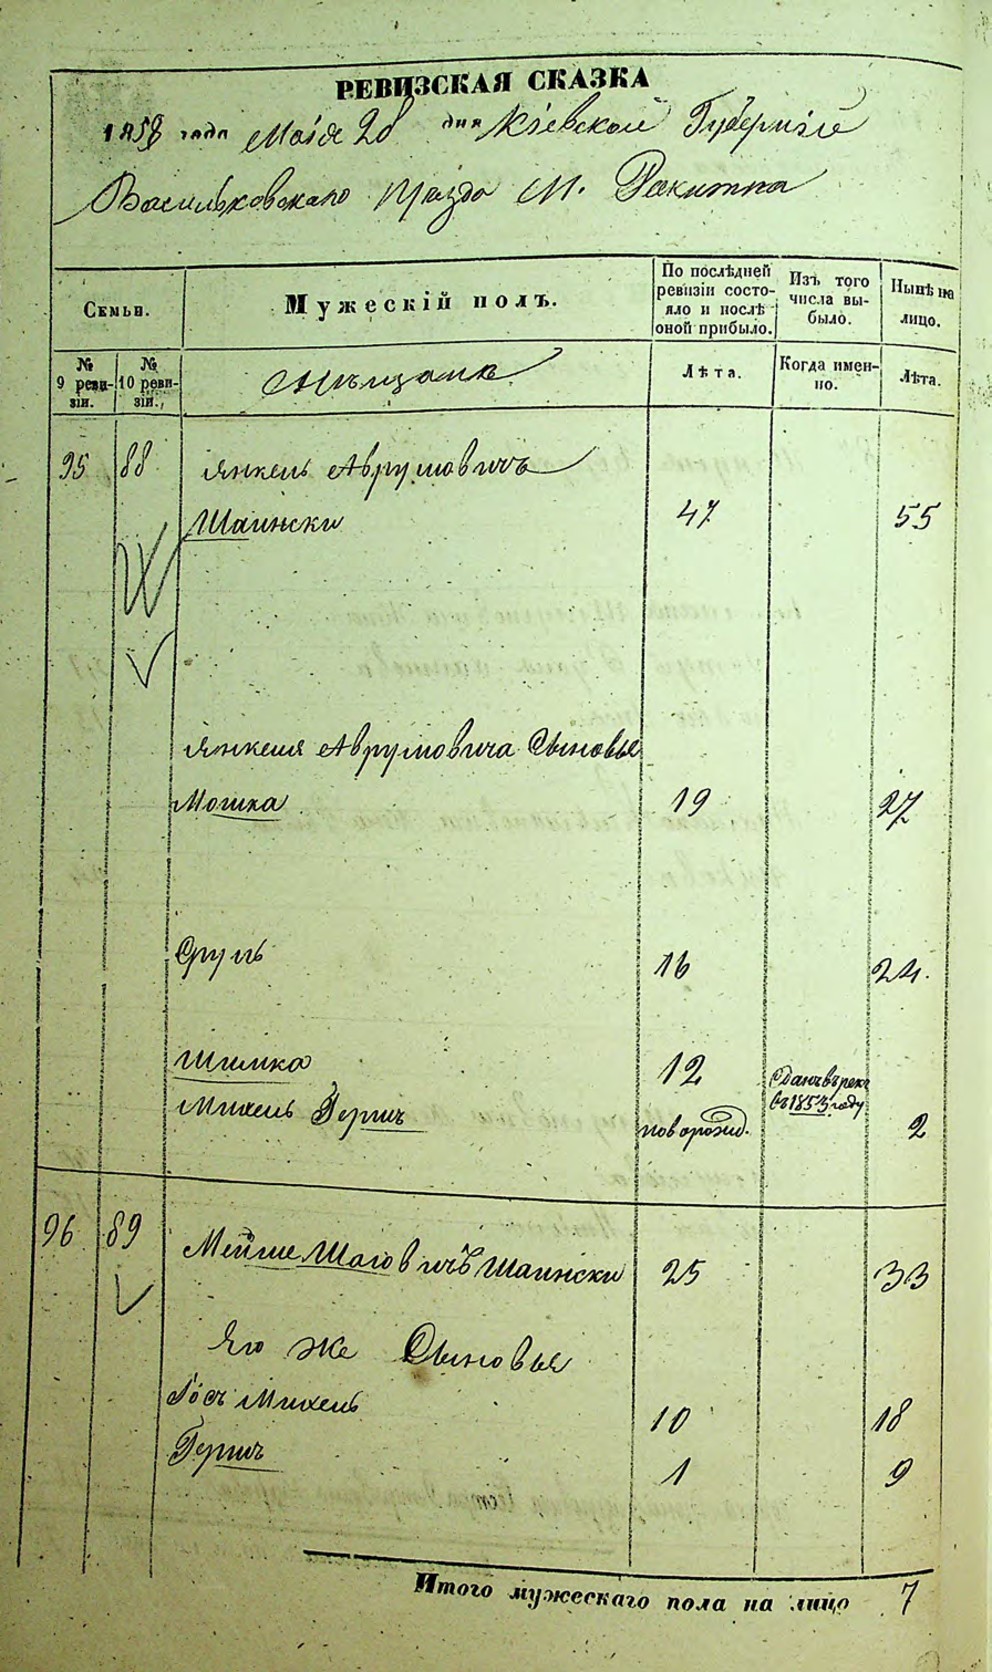 РЕВИЗСКАЯ СКАЗКА
1858 года Маія 28 дня Кіевской Губерніи
Васильковскаго Уѣзда М. Ракитна
Семьи.
Мужескій полъ.
По послѣдней ревизіи состояло и послѣ оной прибыло.
Изъ того числа выбыло.
Нынѣ на лицо.
№ 9 ревизіи.
№ 10 ревизіи.
Мѣщанъ
Лѣта.
Когда именно.
Лѣта.
95 88 Янкель Аврумовичъ
Шаински 47 55
Янкеля Аврумовича Сыновья
Мошка 19 27
Сруль 16 24.
Шимка 12 Данъ въ рек.
въ 1853 году
Михель Гершъ новорожд. 2
96 89 Мейше Шаговичъ Шаински 25 33
Его же Сыновья
Іось Михель 10 18
Гершъ 1 9
Итого мужескаго пола на лицо 7